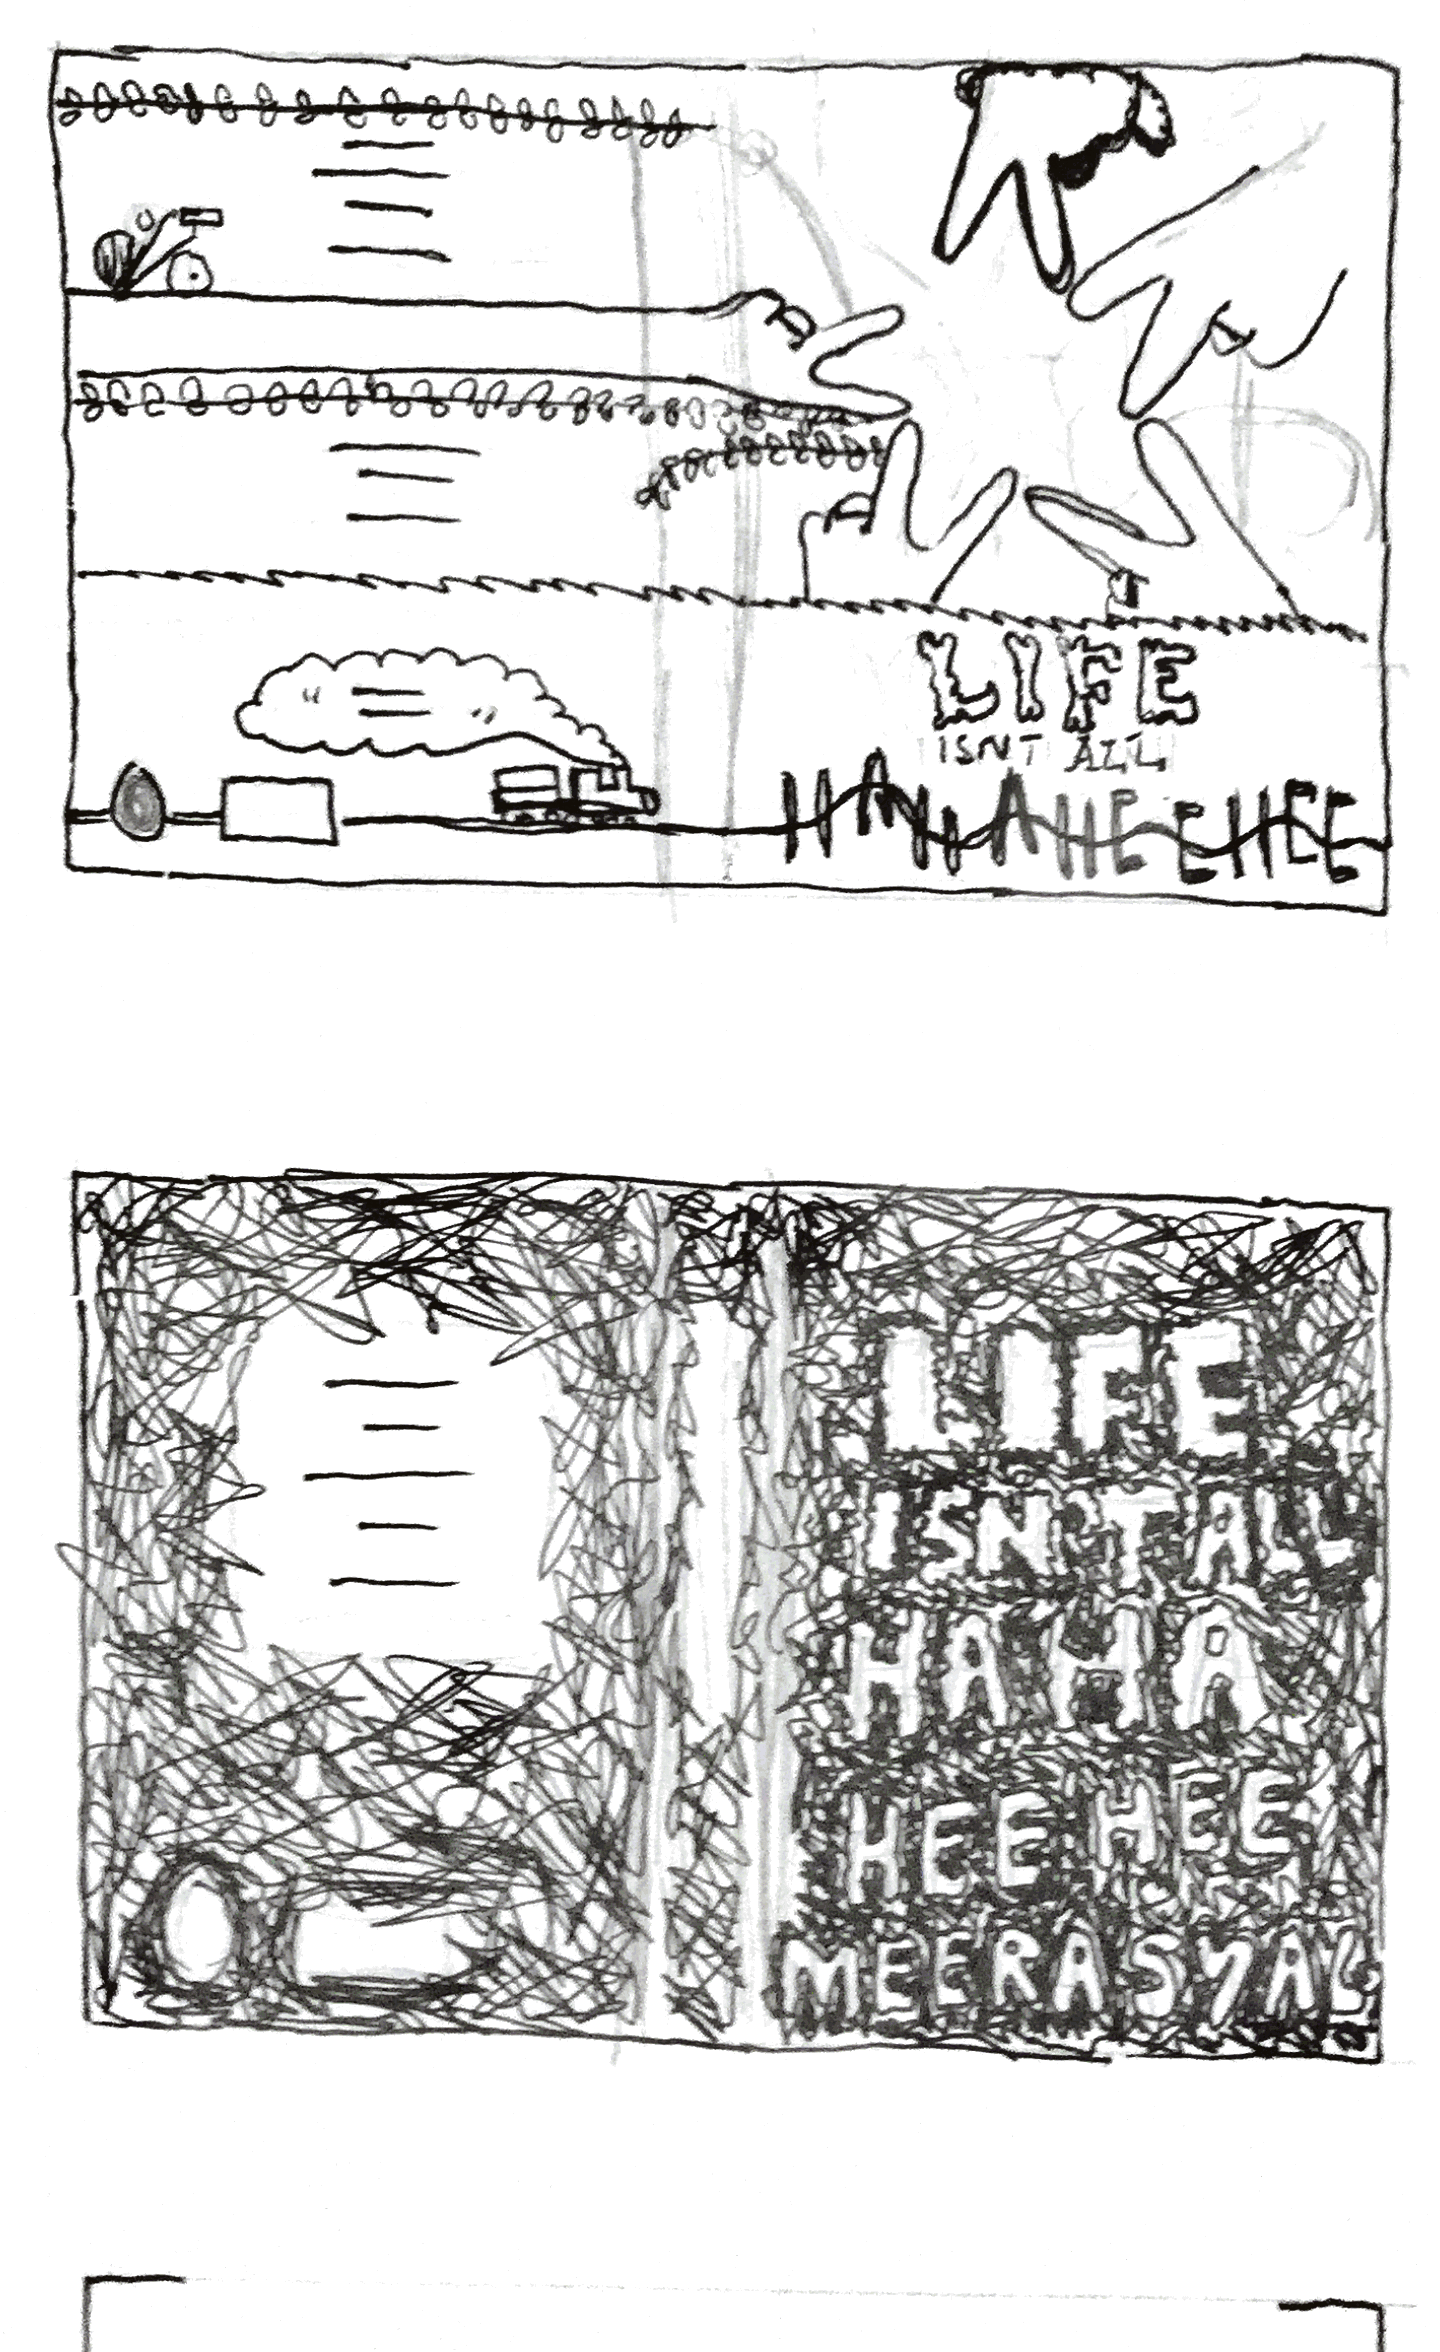 LIFE
ISNT ALL
HA HA HEE HEE
LIFE
ISN'T ALL
HA HA
HEE HEE
MEERA SYAL